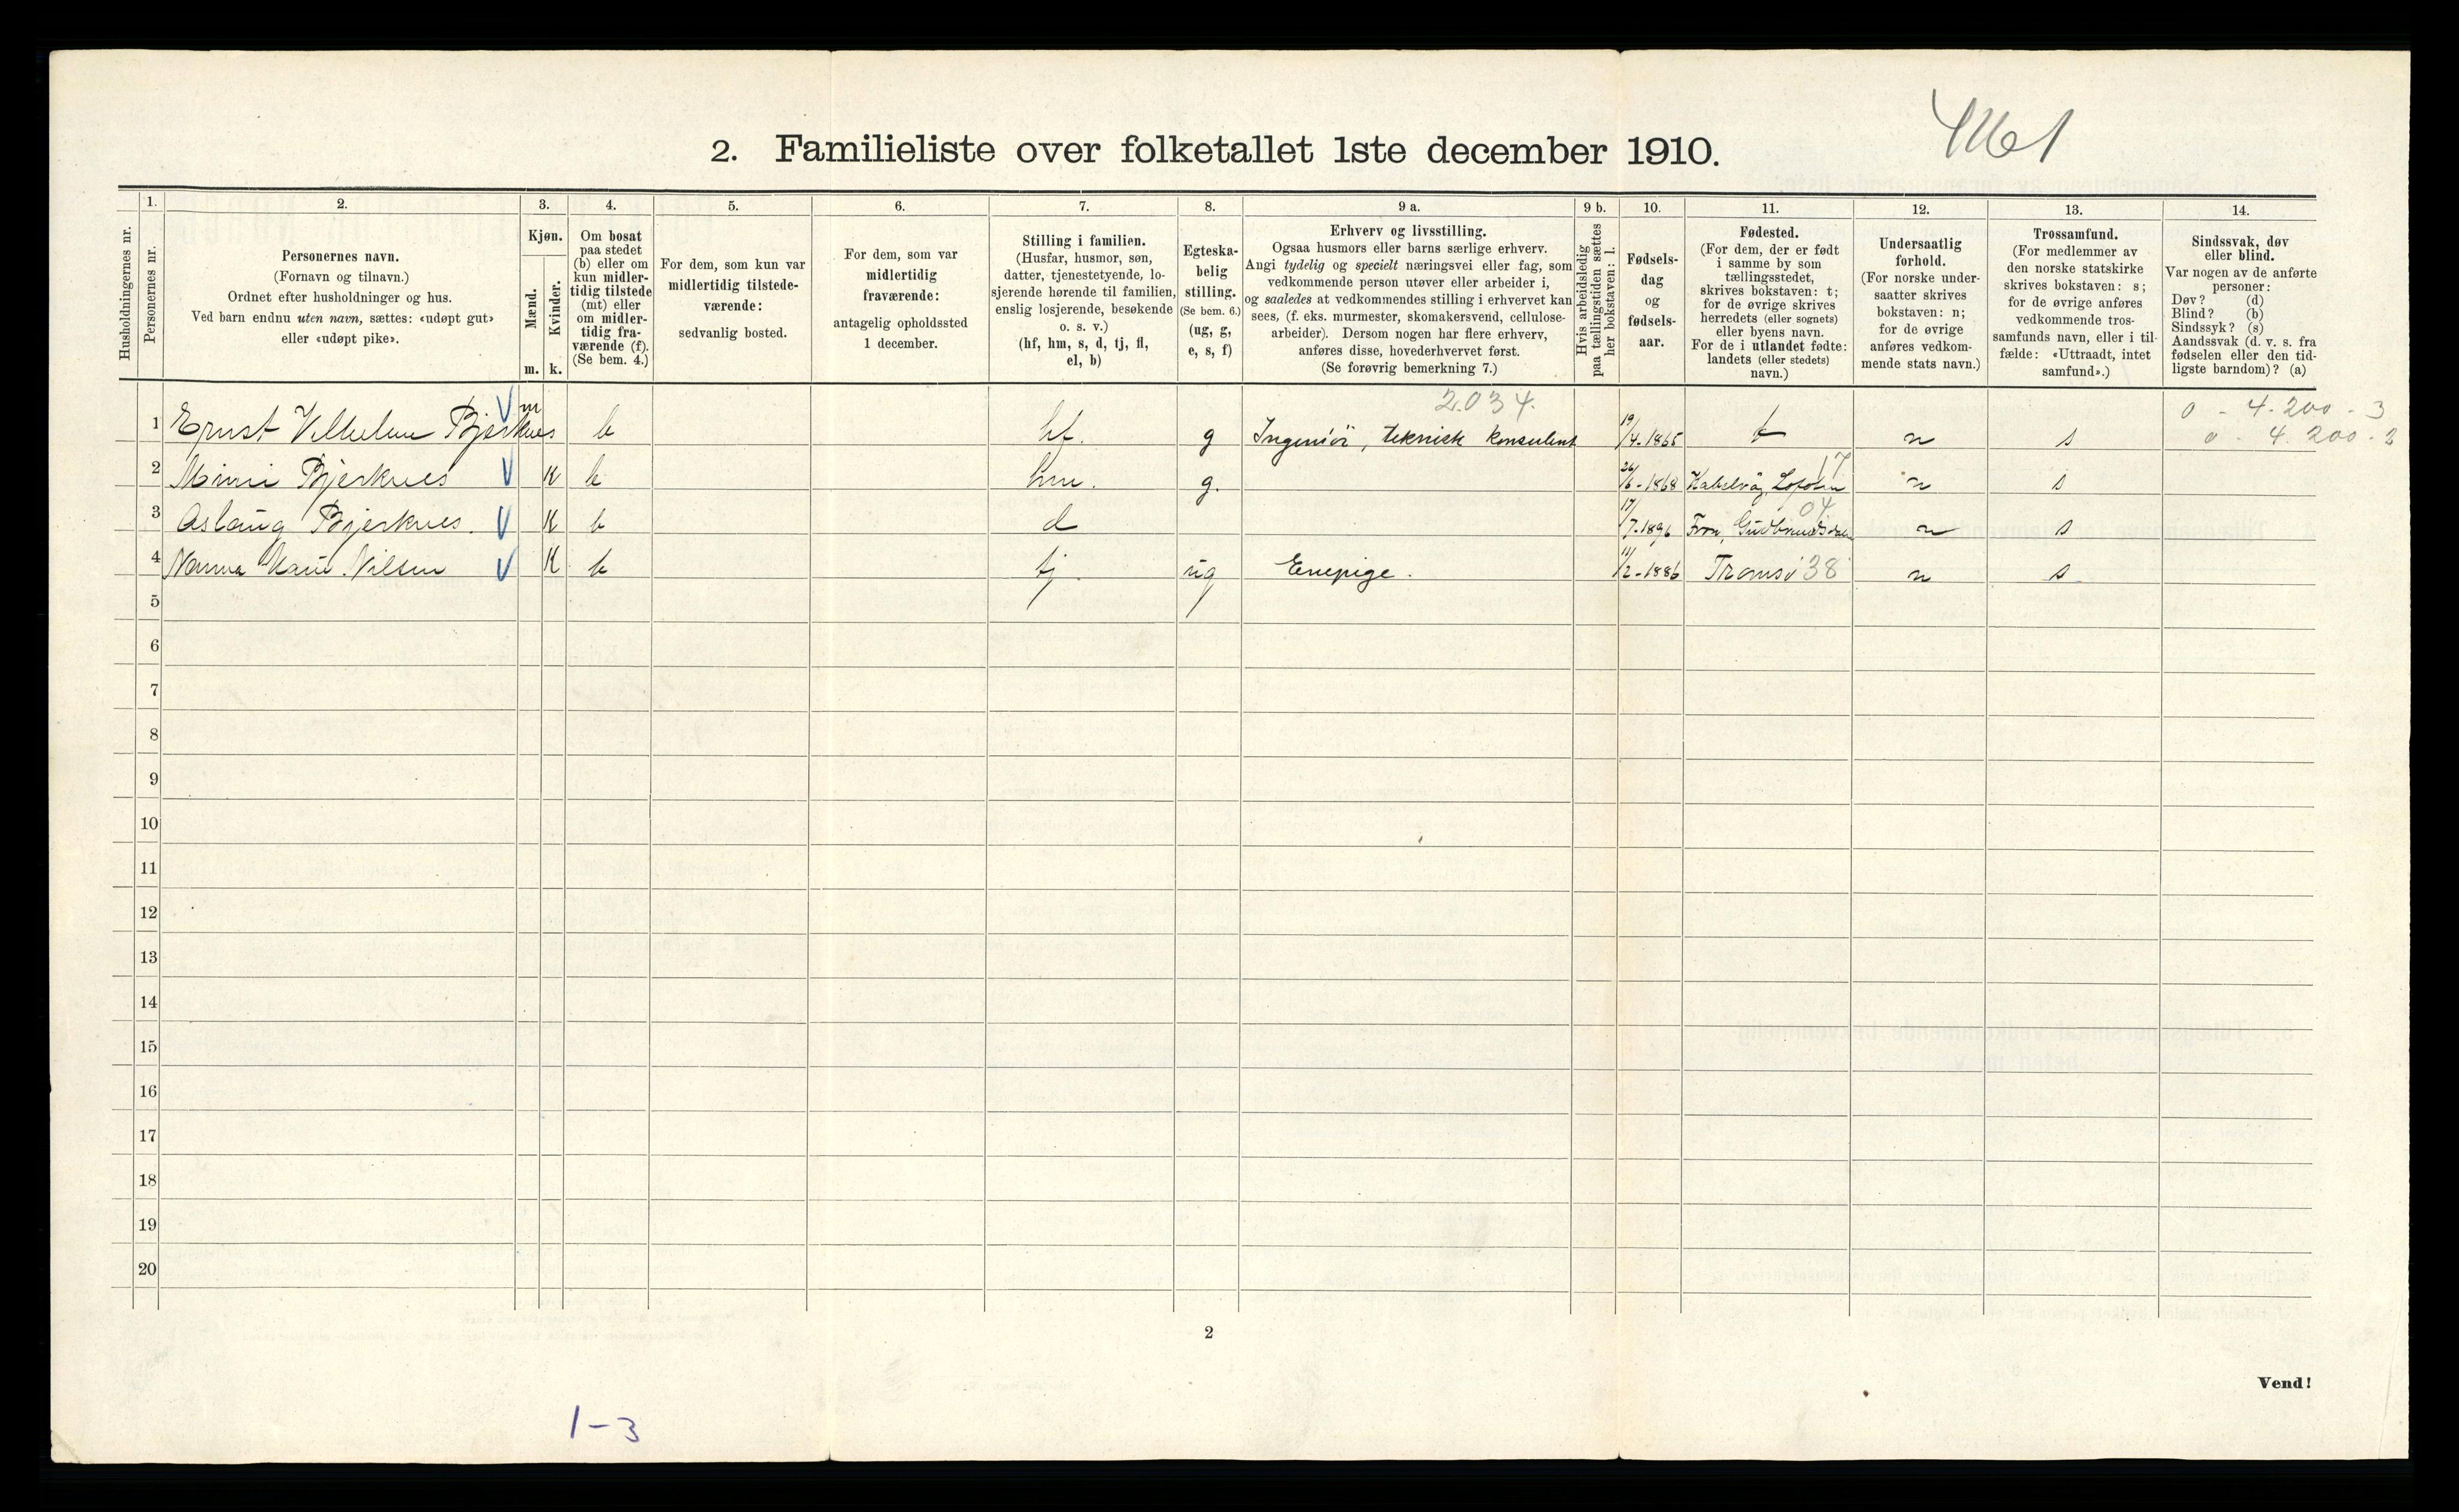 2. Familieliste over folketallet 1ste december 1910.
Husholdningernes nr.
1.
Personernes nr.
2.
Personernes navn.
(Fornavn og tilnavn.)
Ordnet efter husholdninger og hus.
Ved barn endnu uten navn, sættes: «udøpt gut»
eller «udøpt pike».
3.
Kjøn.
Mænd.
Kvinder.
m. k.
4.
Om bosat
paa stedet
(b) eller om
kun midler-
tidig tilstede
(mt) eller
om midler-
tidig fra-
værende (f).
(Se bem. 4.)
5.
For dem, som kun var
midlertidig tilstede-
værende:
sedvanlig bosted.
6.
For dem, som var
midlertidig
fraværende:
antagelig opholdssted
1 december.
7.
Stilling i familien.
(Husfar, husmor, søn,
datter, tjenestetyende, lo-
sjerende hørende til familien,
enslig losjerende, besøkende
o. s. v.)
(hf, hm, s, d, tj, fl,
el, b)
8.
Egteska-
belig
stilling.
(Se bem. 6.)
(ug, g,
e, s, f)
9 a.
Erhverv og livsstilling.
Ogsaa husmors eller barns særlige erhverv.
Angi tydelig og specielt næringsvei eller fag, som
vedkommende person utøver eller arbeider i,
og saaledes at vedkommendes stilling i erhvervet kan
sees, (f. eks. murmester, skomakersvend, cellulose-
arbeider). Dersom nogen har flere erhverv,
anføres disse, hovederhvervet først.
(Se forøvrig bemerkning 7.)
9 b.
Hvis arbeidsledig
paa tællingstiden sættes
her bokstaven: l.
10.
Fødsels-
dag
og
fødsels-
aar.
11.
Fødested.
(For dem, der er født
i samme by som
tællingsstedet,
skrives bokstaven: t;
for de øvrige skrives
herredets (eller sognets)
eller byens navn.
For de i utlandet fødte:
landets (eller stedets)
navn.)
12.
Undersaatlig
forhold.
(For norske under-
saatter skrives
bokstaven: n;
for de øvrige
anføres vedkom-
mende stats navn.)
13.
Trossamfund.
(For medlemmer av
den norske statskirke
skrives bokstaven: s;
for de øvrige anføres
vedkommende tros-
samfunds navn, eller i til-
fælde: «Uttraadt, intet
samfund».)
14.
Sindssvak, døv
eller blind.
Var nogen av de anførte
personer:
Døv? (d)
Blind? (b)
Sindssyk? (s)
Aandssvak (d. v. s. fra
fødselen eller den tid-
ligste barndom)? (a)
2.034.
0 - 4.200 - 3
1 Ernst Vilhelm Bjerknes m b hf. g Ingeniör, teknisk konsulent 19/4.1865 t n s 0 - 4.200 - 3
17
2 Mimi Bjerknes K b hm. g. 26/6-1868 Kabelvåg, Lofoten n s
04
3 Aslaug Bjerknes. K b d 17/7.1896 Fron, Gudbrandsdalen n s
4 Nanna Marie Nilsen K b tj. ug Enepige. 11/2-1886 Tromsö 38 n s
5
6
7
8
9
10
11
12
13
14
15
16
17
18
19
20
2
Vend!
1-3